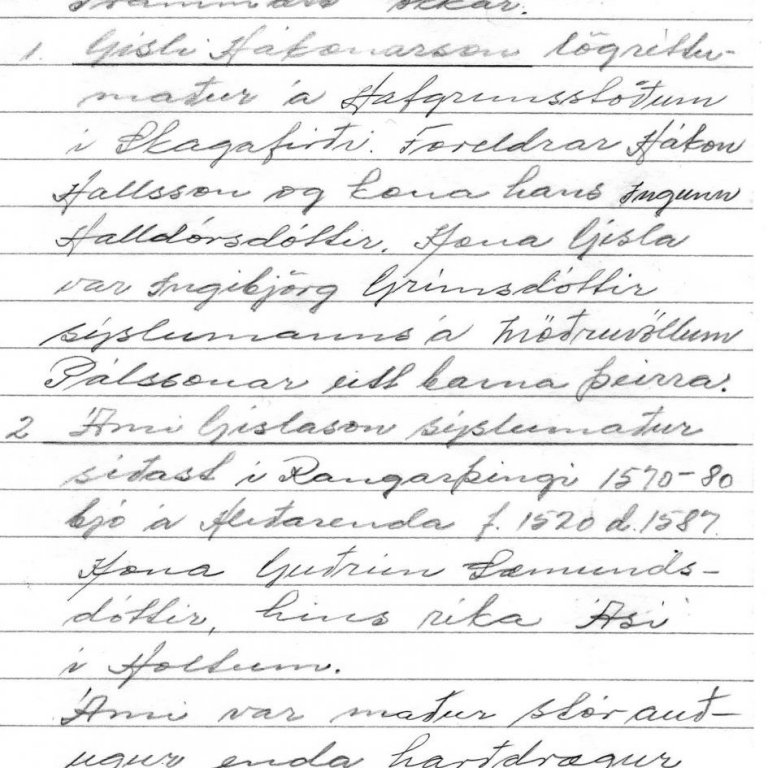 okkar.
1. Gísli Hákonarson lögréttu-
maður á Hafgrímsstöðum
í Skagafirði. Foreldrar Hákon
Hallsson og kona hans Ingunn
Halldórsdóttir. Kona Gísla
var Ingibjörg Grímsdóttir
sýslumanns á Möðruvöllum
Pálssonar eitt barna þeirra.
2 Árni Gíslason sýslumaður
síðast í Rangarþingi 1570-80
bjó á Hlíðarenda f. 1520 d. 1587.
Kona Guðrún Sæmunds-
dóttir, hins ríka Ási
í Holtum.
Árni var maður stórauð-
ugur enda harðdrægur